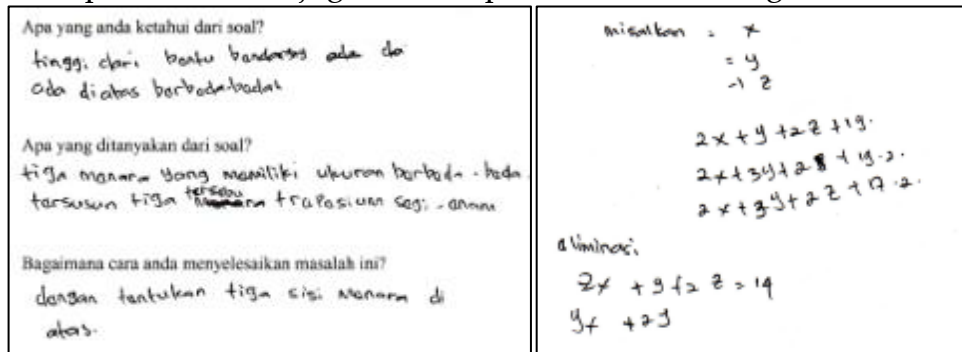 Apa yang anda ketahui dari soal?
tinggi dari bentu ada
ada diatas berbeda-beda
Apa yang ditanyakan dari soal?
tiga manara yang memiliki ukuran berbeda-beda
tersusun tiga trapesium segi-anam
Bagaimana cara anda menyelesaikan masalah ini?
dengan tentukan tiga sisi Manara di
atas.
misalkan : x
= y
z
2x + y + 2z + 19.
2x + 3y + 2 + 19.2.
2x + 3y + 2z + 17.2.
aliminasi
2x + y + 2 z = 19
+ 2y